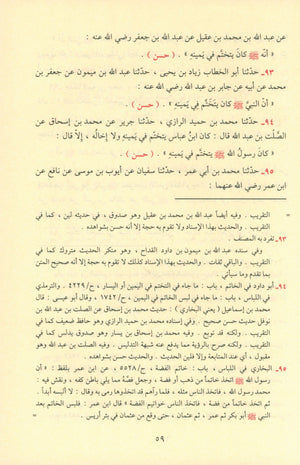 عن عبد الله بن محمد بن عقيل عن عبد الله بن جعفر رضي الله عنه :
« أنّه ﷺ كانَ يتختَّم في يَمينِهِ » . ( حسن ) .
٩٣ـ حدّثنا أبو الخطاب زياد بن يحيى ، حدّثنا عبد الله بن ميمون عن جعفر بن
محمد عن أبيه عن جابر بن عبد الله رضي الله عنه :
« أنّ النبيَّ ﷺ كان يتَختَّم في يَمينِهِ » . ( حسن ) .
٩٤ـ حدّثنا محمد بن حميد الرازي ، حدّثنا جرير عن محمد بن إسحاق عن
الصَّلْت بن عبد الله قال : كانَ ابنُ عباس يتختَّم في يَمينِهِ ولا إخالُه ، إلّا قال :
« كانَ رسولُ الله ﷺ يتختَّم في يمينِهِ » . ( حسن ) .
٩٥ـ حدّثنا محمد بن أبي عمر ، حدّثنا سفيان عن أيوب بن موسى عن نافع عن
ابن عمر رضي الله عنهما :
التقريب . وفيه أيضاً عبد الله بن محمد بن عقيل وهو صدوق ، في حديثه لين ، كما في
التقريب . والحديث بهذا الإسناد ولا تقوم به حجة إلا أنه حسن بشواهده .
٩٣ـ تفرد به المصنف .
وفي سنده عبد الله بن ميمون بن داود القداح ، وهو منكر الحديث متروك كما في
التقريب . والباقي ثقات . والحديث بهذا الإسناد كذلك لا تقوم به حجة إلا أنه صحيح المتن
بما تقدم وما سيأتي .
٩٤ـ أبو داود في الخاتم ، باب : ما جاء في التختم في اليمين أو اليسار ، ح/٤٢٢٩ ، والترمذي
في اللباس ، باب : ما جاء في لبس الخاتم في اليمين ، ح/١٧٤٢ ، وقال أبو عيسى : قال
محمد بن إسماعيل ( يعني البخاري ) : حديث محمد بن إسحاق عن الصلت بن عبد الله
بن نوفل حديث حسن صحيح . وفي إسناده محمد بن حميد الرازي وهو حافظ ضعيف كما في
التقريب . ولكنه قد توبع . وفيه محمد بن إسحاق بن يسار وهو صدوق يدلس كما في
التقريب . ولكنه صرح بالرؤية مما يدفع عنه شبهة التدليس . وفيه الصلت بن عبد الله وهو
مقبول ، أي عند المتابعة وإلا فلين الحديث . والحديث حسن بشواهده .
٩٥ـ البخاري في اللباس ، باب : خاتم الفضة ، ح/٥٥٢٨ ، عن ابن عمر بلفظ : « أن
رسول الله ﷺ اتخذ خاتماً من ذهب أو فضة ، وجعل فصَّهُ مما يلي باطن كفه ، ونقش فيه :
محمد رسول الله ، فاتخذ الناس مثله ، فلما رآهم قد اتخذوها رمى به وقال : لا ألبسه أبداً .
ثم اتخذ خاتماً من فضة ، فاتخذ الناس خواتيم الفضة » قال ابن عمر : فلبس الخاتم بعد
النبي ﷺ أبو بكر ثم عمر ، ثم عثمان ، حتى وقع من عثمان في بئر أريس .
٥٩